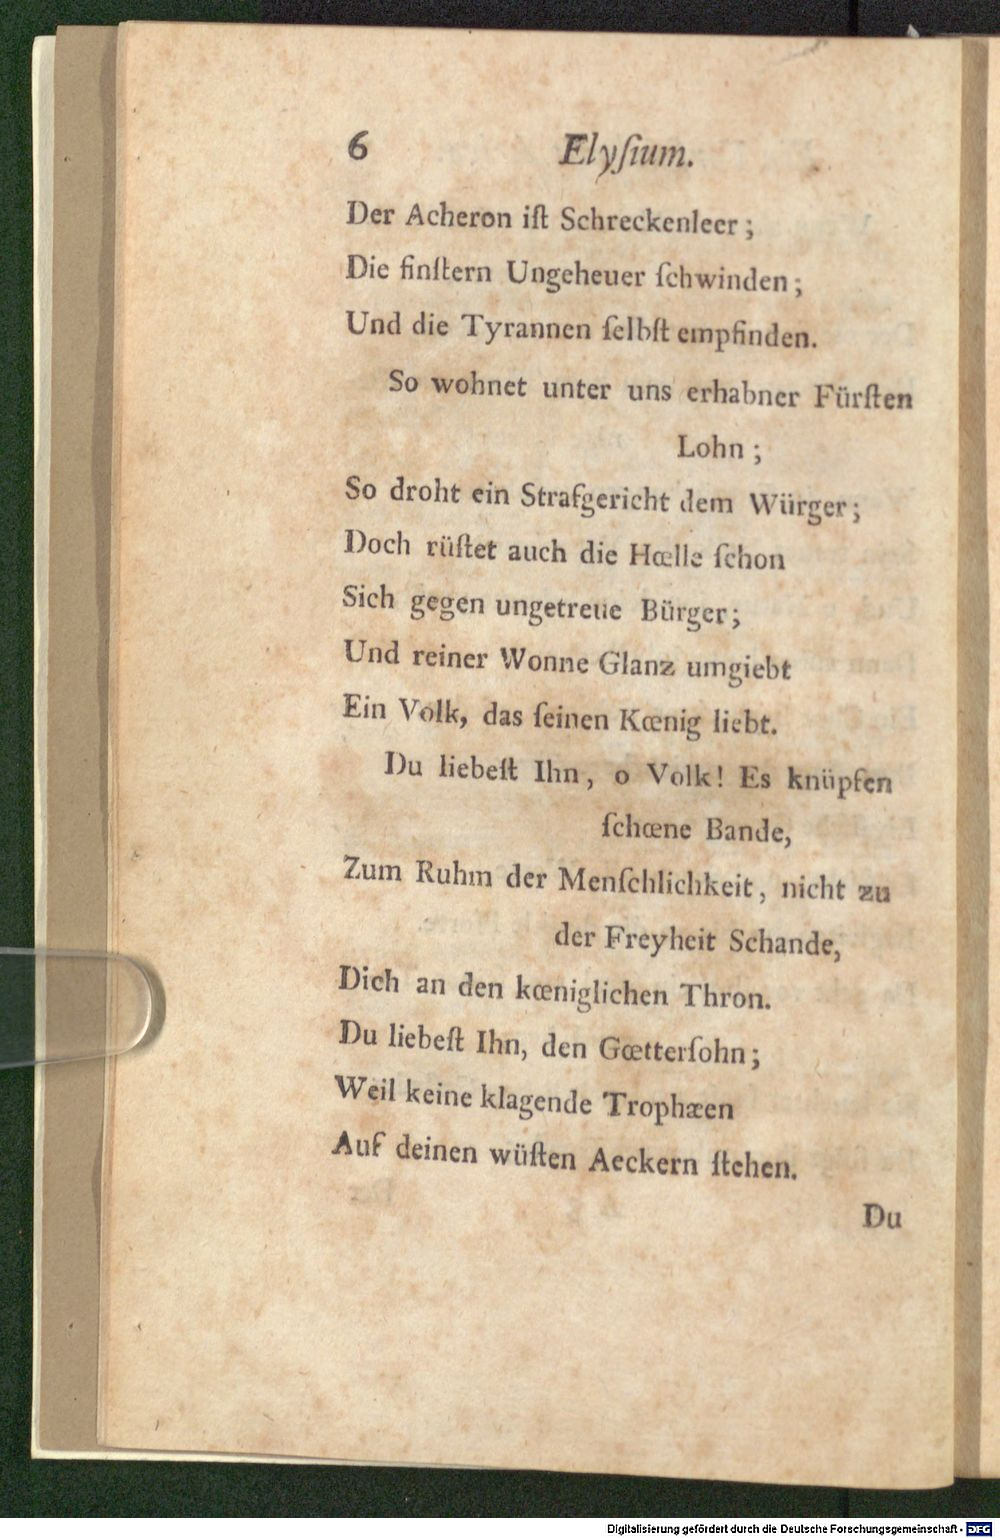 6 Elyſium.
Der Acheron iſt Schreckenleer;
Die finſtern Ungeheuer ſchwinden;
Und die Tyrannen ſelbſt empfinden.
So wohnet unter uns erhabner Fürſten
Lohn;
So droht ein Strafgericht dem Würger;
Doch rüſtet auch die Hœlle ſchon
Sich gegen ungetreue Bürger;
Und reiner Wonne Glanz umgiebt
Ein Volk, das ſeinen Kœnig liebt.
Du liebeſt Ihn, o Volk! Es knüpfen
ſchœne Bande,
Zum Ruhm der Menſchlichkeit, nicht zu
der Freyheit Schande,
Dich an den kœniglichen Thron.
Du liebeſt Ihn, den Gœtterſohn;
Weil keine klagende Trophæen
Auf deinen wüſten Aeckern ſtehen.
Du
Digitalisierung gefördert durch die Deutsche Forschungsgemeinschaft - DFG